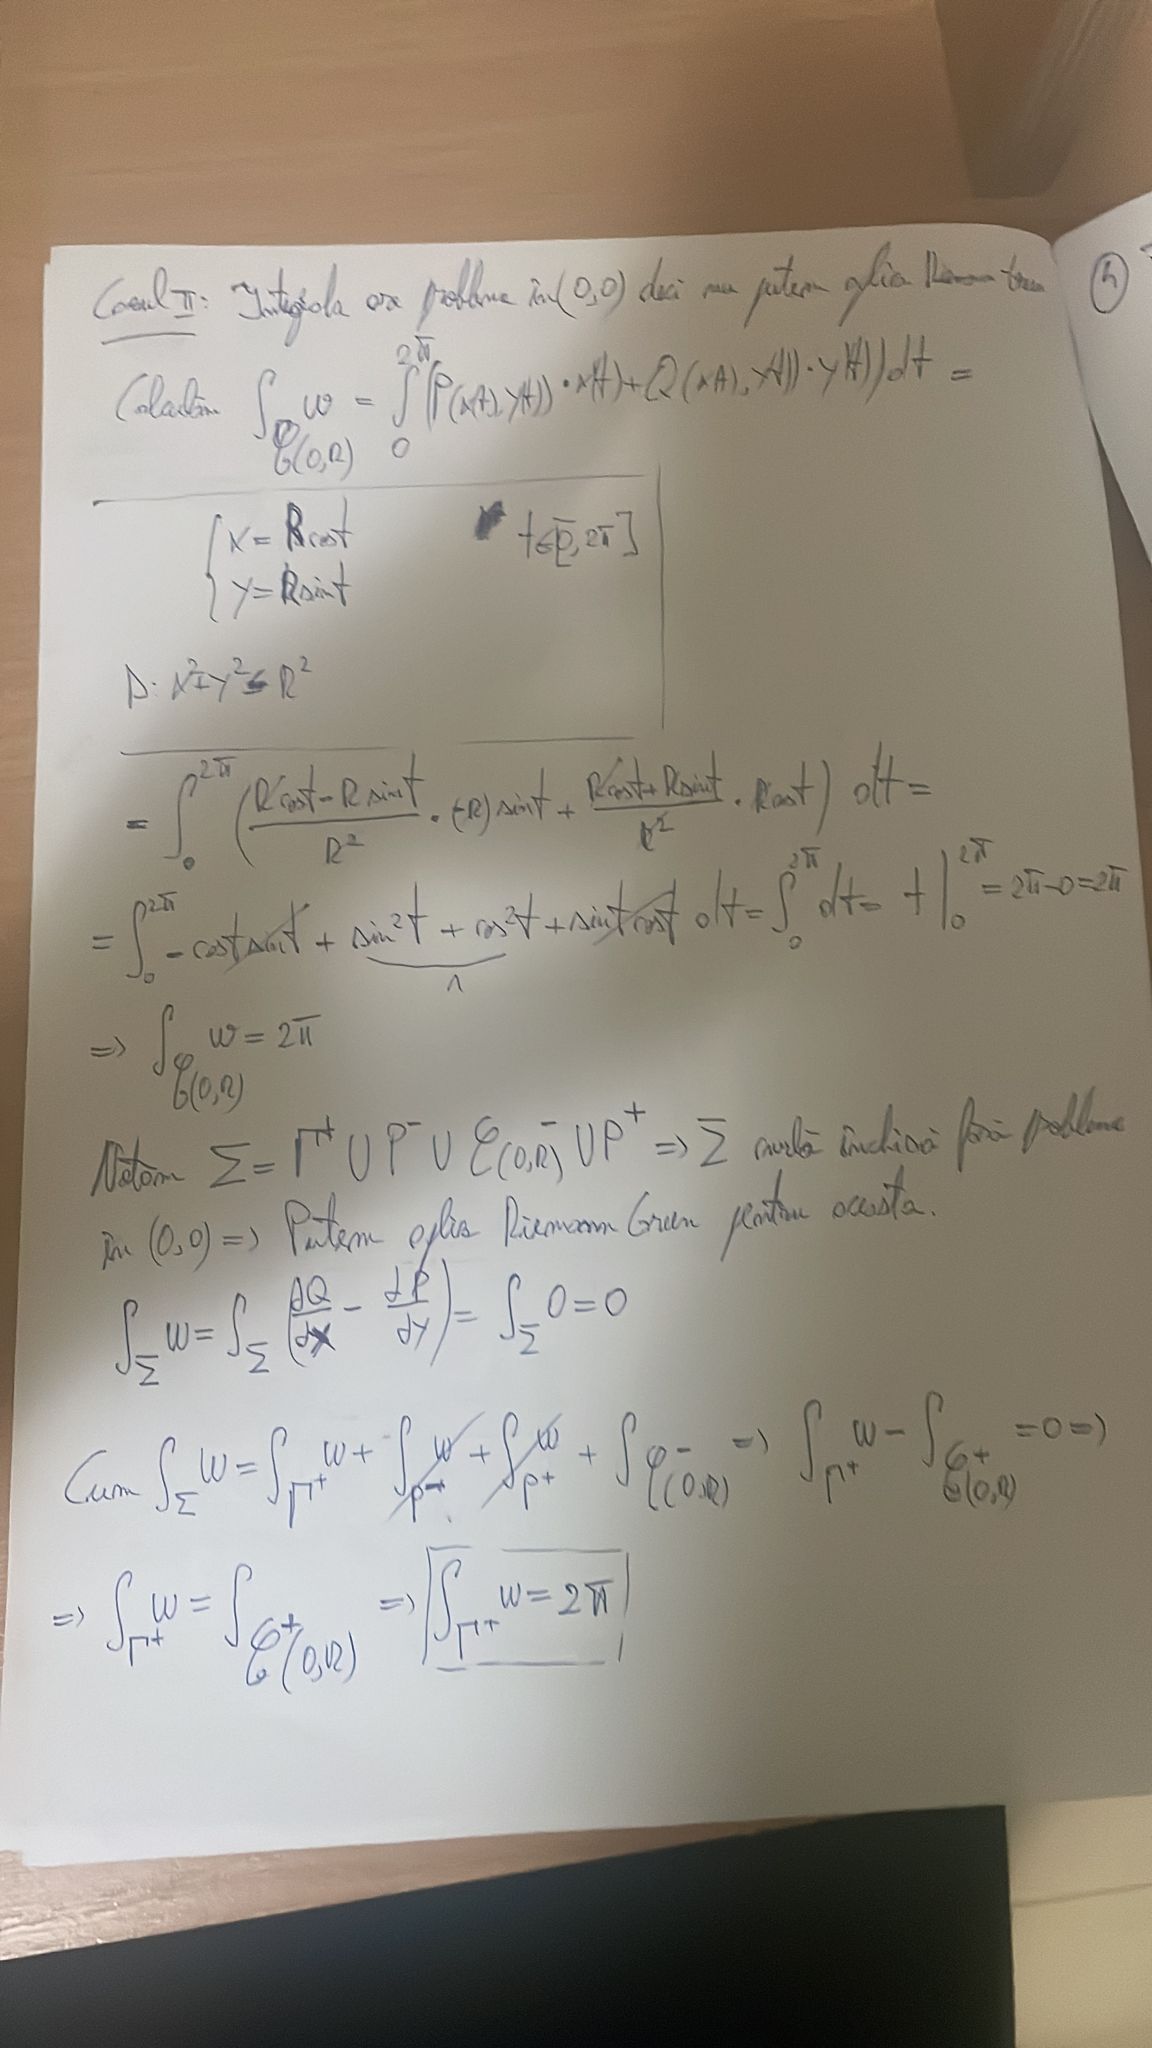 Cazul II: Integrala are probleme în (0,0) deci nu putem aplica Riemann Green
④
Calculăm ∫_{𝒞(0,R)} w = ∫_0^{2π} (P(x(t), y(t)) · x'(t) + Q(x(t), y(t)) · y'(t)) dt =
{ x = R cos t
t ∈ [0, 2π]
y = R sin t
D: x² + y² ≤ R²
= ∫_0^{2π} ( (R cos t - R sin t)/R² · (-R) sin t + (R cos t + R sin t)/R² · R cos t ) dt =
= ∫_0^{2π} - cos t sin t + sin² t + cos² t + sin t cos t dt = ∫_0^{2π} dt = t |_0^{2π} = 2π - 0 = 2π
1
=> ∫_{𝒞(0,R)} w = 2π
Notăm Σ = Γ⁺ ∪ P⁻ ∪ 𝒞(0,R)⁻ ∪ P⁺ => Σ curbă închisă fără probleme
în (0,0) => Putem aplica Riemann Green pentru aceasta.
∫_Σ w = ∫_Σ (dQ/dx - dP/dy) = ∫_Σ 0 = 0
Cum ∫_Σ w = ∫_{Γ⁺} w + ∫_{P⁻} w + ∫_{P⁺} w + ∫_{𝒞⁻(0,R)} => ∫_{Γ⁺} w - ∫_{𝒞⁺(0,R)} = 0 =>
=> ∫_{Γ⁺} w = ∫_{𝒞⁺(0,R)} => ∫_{Γ⁺} w = 2π